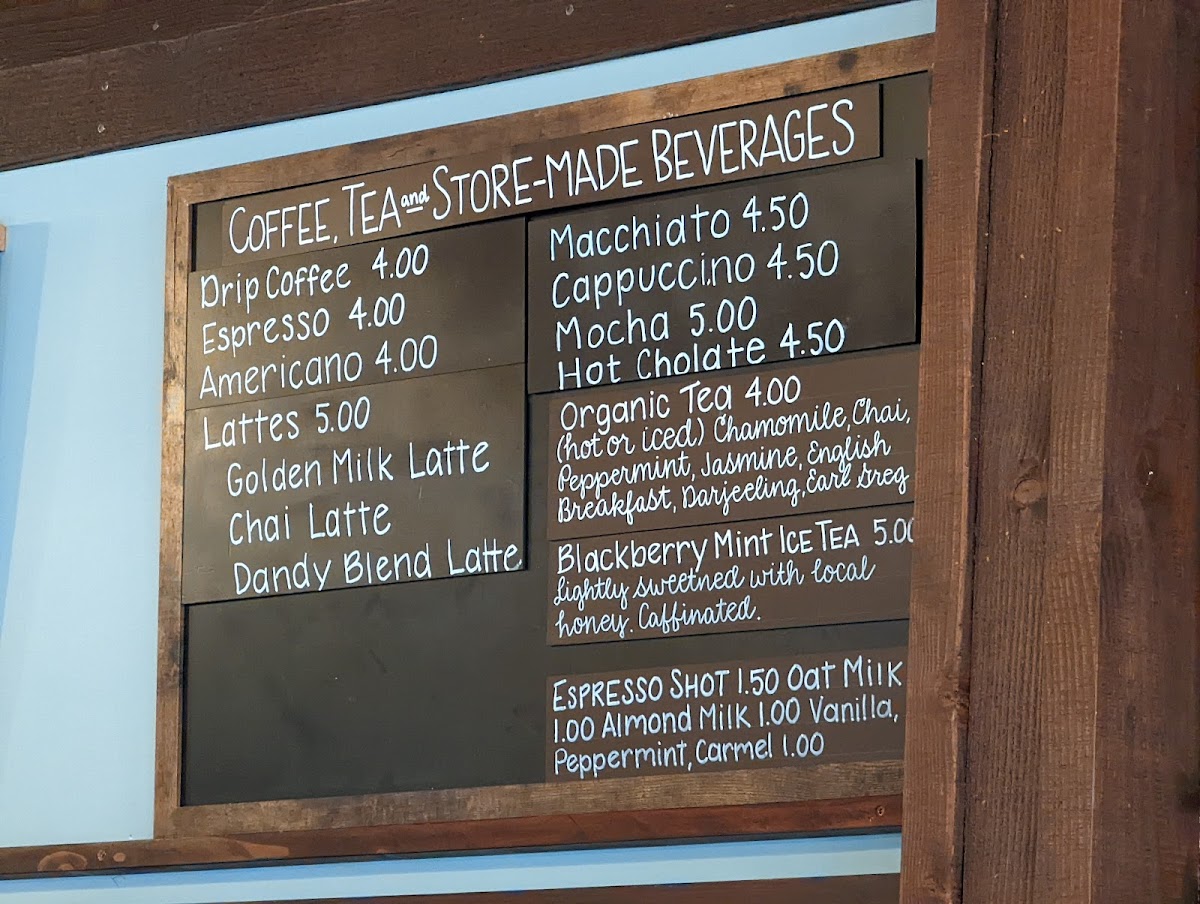 COFFEE, TEA and STORE-MADE BEVERAGES
Drip Coffee 4.00
Espresso 4.00
Americano 4.00
Lattes 5.00
Golden Milk Latte
Chai Latte
Dandy Blend Latte
Macchiato 4.50
Cappuccino 4.50
Mocha 5.00
Hot Cholate 4.50
Organic Tea 4.00
(hot or iced) Chamomile, Chai,
Peppermint, Jasmine, English
Breakfast, Darjeeling, Earl Greg
Blackberry Mint ICE TEA 5.00
Lightly sweetned with local
honey. Caffinated.
ESPRESSO SHOT 1.50 Oat Milk
1.00 Almond Milk 1.00 Vanilla,
Peppermint, Carmel 1.00